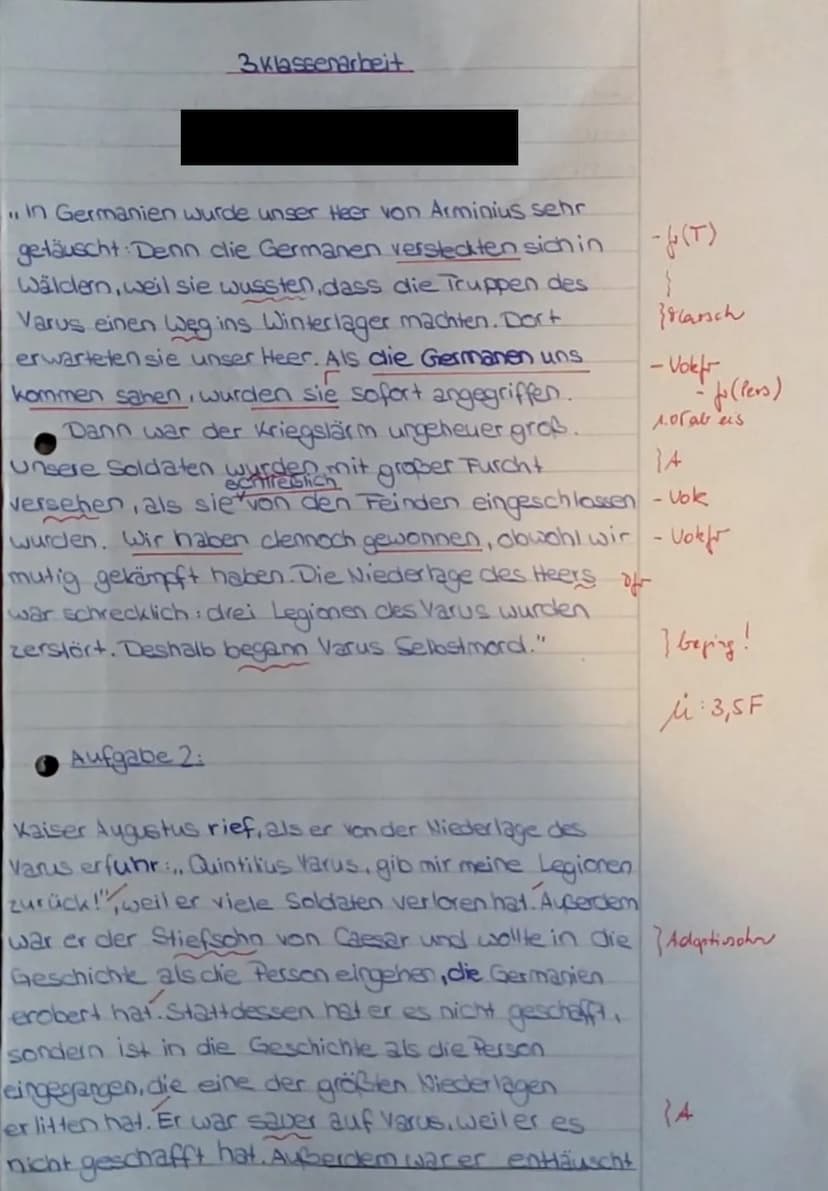 3 Klassenarbeit
„In Germanien wurde unser Heer von Arminius sehr
getäuscht: Denn die Germanen versteckten sich in - f(T)
Wäldern, weil sie wussten, dass die Truppen des
Varus einen Weg ins Winterlager machten. Dort Marsch
erwarteten sie unser Heer. Als die Germanen uns - Vokf
kommen sahen, wurden sie sofort angegriffen. - f(Pers)
Dann war der Kriegslärm ungeheuer groß.
Unsere Soldaten wurden mit großer Furcht A
schließlich
versehen, als sie von den Feinden eingeschlossen - Vok
wurden. Wir haben dennoch gewonnen, obwohl wir - Vokf
mutig gekämpft haben. Die Niederlage des Heers
war schrecklich: drei Legionen des Varus wurden
zerstört. Deshalb begann Varus Selbstmord." beging!
Ü: 3,5F
Aufgabe 2:
Kaiser Augustus rief, als er von der Niederlage des
Varus erfuhr: „Quintilius Varus, gib mir meine Legionen
zurück!", weil er viele Soldaten verloren hat. Außerdem
war er der Stiefsohn von Caesar und wollte in die Adoptivsohn
Geschichte als die Person eingehen, die Germanien
erobert hat. Stattdessen hat er es nicht geschafft,
sondern ist in die Geschichte als die Person
eingegangen, die eine der größten Niederlagen
erlitten hat. Er war sauer auf Varus, weil er es A
nicht geschafft hat. Außerdem war er enttäuscht